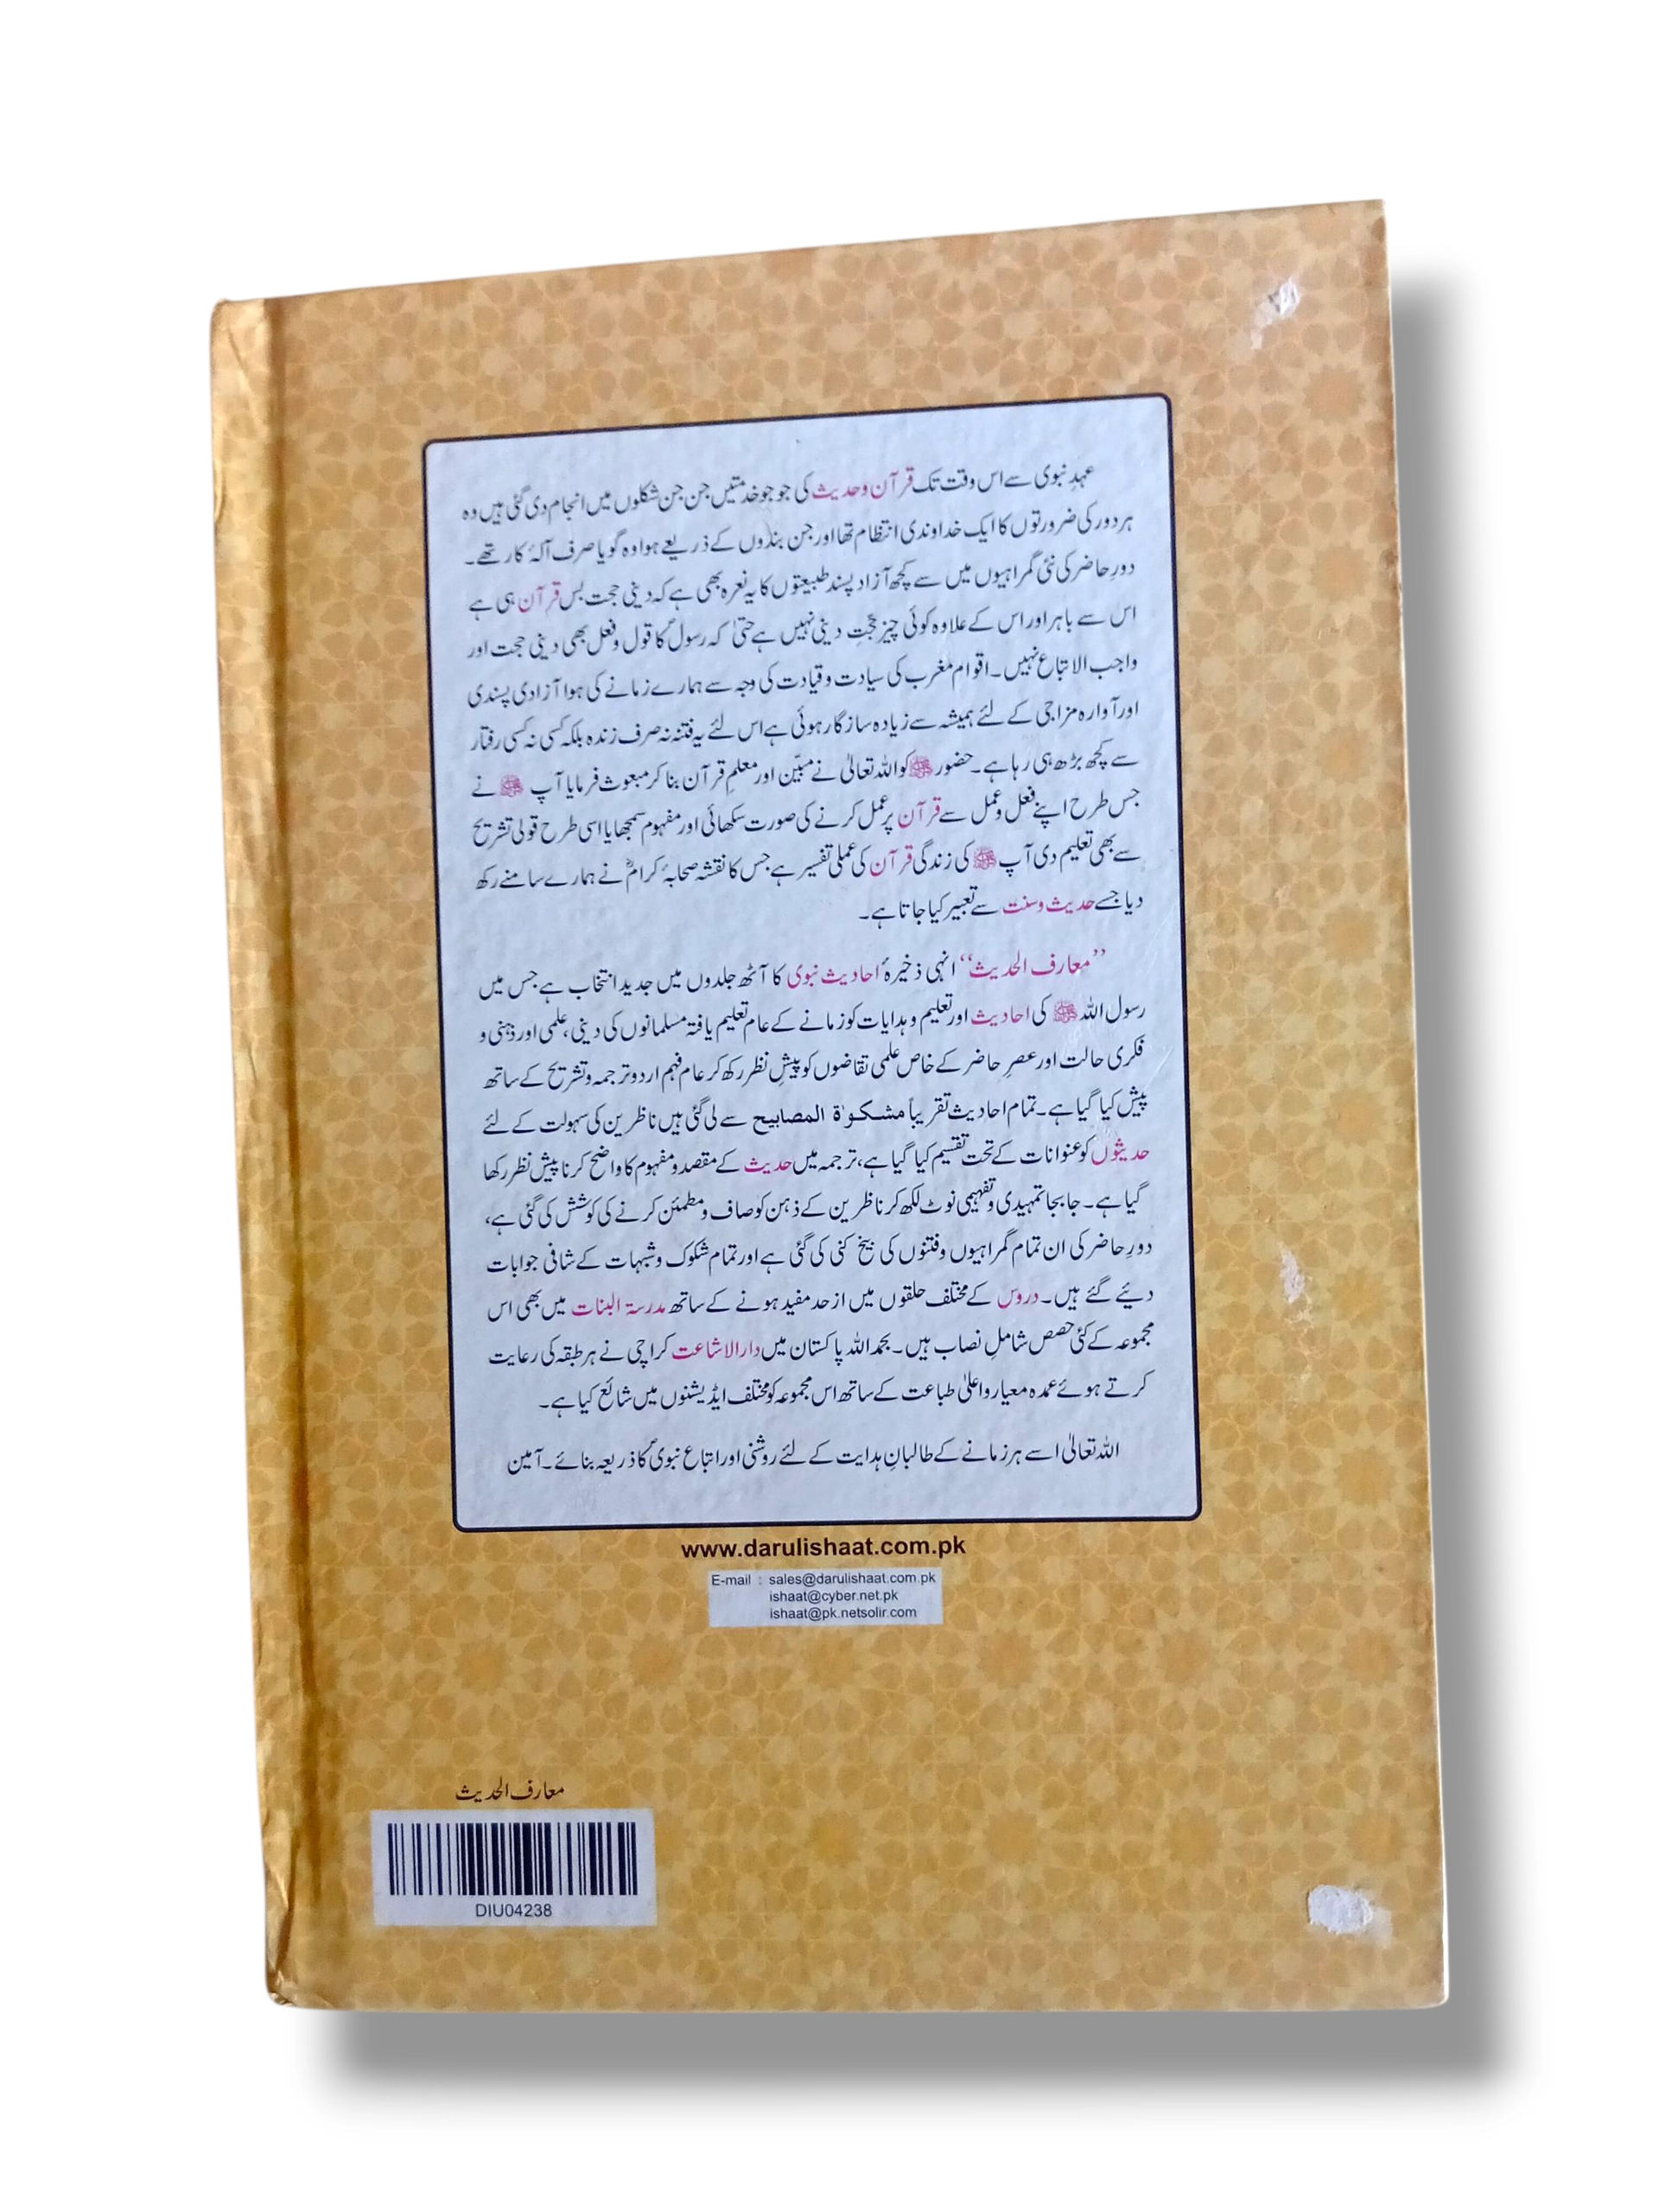 عہدِ نبوی سے اس وقت تک قرآن وحدیث کی جو جو خدمتیں جن جن شکلوں میں انجام دی گئی ہیں وہ
ہر دور کی ضرورتوں کا ایک خداوندی انتظام تھا اور جن بندوں کے ذریعے ہوا وہ گویا صرف آلۂ کار تھے۔
دورِ حاضر کی نئی گمراہیوں میں سے کچھ آزاد پسند طبیعتوں کا یہ نعرہ بھی ہے کہ دینی حجت بس قرآن ہی ہے
اس سے باہر اور اس کے علاوہ کوئی چیز حجّتِ دینی نہیں ہے حتیٰ کہ رسولؐ کا قول وفعل بھی دینی حجت اور
واجب الاتباع نہیں۔ اقوام مغرب کی سیادت و قیادت کی وجہ سے ہمارے زمانے کی ہوا آزادی پسندی
اور آوارہ مزاجی کے لئے ہمیشہ سے زیادہ سازگار ہوئی ہے اس لئے یہ فتنہ نہ صرف زندہ بلکہ کسی نہ کسی رفتار
سے کچھ بڑھ ہی رہا ہے۔ حضور ﷺ کو اللہ تعالیٰ نے مبیّن اور معلمِ قرآن بنا کر مبعوث فرمایا آپ ﷺ نے
جس طرح اپنے فعل وعمل سے قرآن پر عمل کرنے کی صورت سکھائی اور مفہوم سمجھایا اسی طرح قولی تشریح
سے بھی تعلیم دی آپ ﷺ کی زندگی قرآن کی عملی تفسیر ہے جس کا نقشہ صحابۂ کرامؓ نے ہمارے سامنے رکھ
دیا جسے حدیث وسنت سے تعبیر کیا جاتا ہے۔
”معارف الحدیث“ انہی ذخیرۂ احادیث نبوی کا آٹھ جلدوں میں جدید انتخاب ہے جس میں
رسول اللہ ﷺ کی احادیث اور تعلیم و ہدایات کو زمانے کے عام تعلیم یافتہ مسلمانوں کی دینی، علمی اور ذہنی و
فکری حالت اور عصرِ حاضر کے خاص علمی تقاضوں کو پیشِ نظر رکھ کر عام فہم اردو ترجمہ و تشریح کے ساتھ
پیش کیا گیا ہے۔ تمام احادیث تقریباً مشکوٰۃ المصابیح سے لی گئی ہیں ناظرین کی سہولت کے لئے
حدیثوں کو عنوانات کے تحت تقسیم کیا گیا ہے، ترجمہ میں حدیث کے مقصد و مفہوم کا واضح کرنا پیش نظر رکھا
گیا ہے۔ جا بجا تمہیدی و تفہیمی نوٹ لکھ کر ناظرین کے ذہن کو صاف و مطمئن کرنے کی کوشش کی گئی ہے،
دورِ حاضر کی ان تمام گمراہیوں و فتنوں کی بیخ کنی کی گئی ہے اور تمام شکوک و شبہات کے شافی جوابات
دیئے گئے ہیں۔ دروس کے مختلف حلقوں میں از حد مفید ہونے کے ساتھ مدرسۃ البنات میں بھی اس
مجموعہ کے کئی حصص شاملِ نصاب ہیں۔ بحمد اللہ پاکستان میں دارالاشاعت کراچی نے ہر طبقہ کی رعایت
کرتے ہوئے عمدہ معیار و اعلیٰ طباعت کے ساتھ اس مجموعہ کو مختلف ایڈیشنوں میں شائع کیا ہے۔
اللہ تعالیٰ اسے ہر زمانے کے طالبانِ ہدایت کے لئے روشنی اور اتباع نبویؐ کا ذریعہ بنائے۔ آمین
www.darulishaat.com.pk
E-mail : sales@darulishaat.com.pk
ishaat@cyber.net.pk
ishaat@pk.netsolir.com
معارف الحدیث
DIU04238